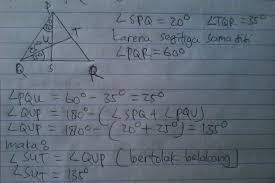 P
U
T
Q
S
R
∠SPQ = 20° ∠TQR = 35°
karena segitiga sama sisi
∠PQR = 60°
∠PQU = 60° - 35° = 25°
∠QUP = 180° - (∠SPQ + ∠PQU)
∠QUP = 180° - (20° + 25°) = 135°
maka
∠SUT = ∠QUP (bertolak belakang)
∠SUT = 135°